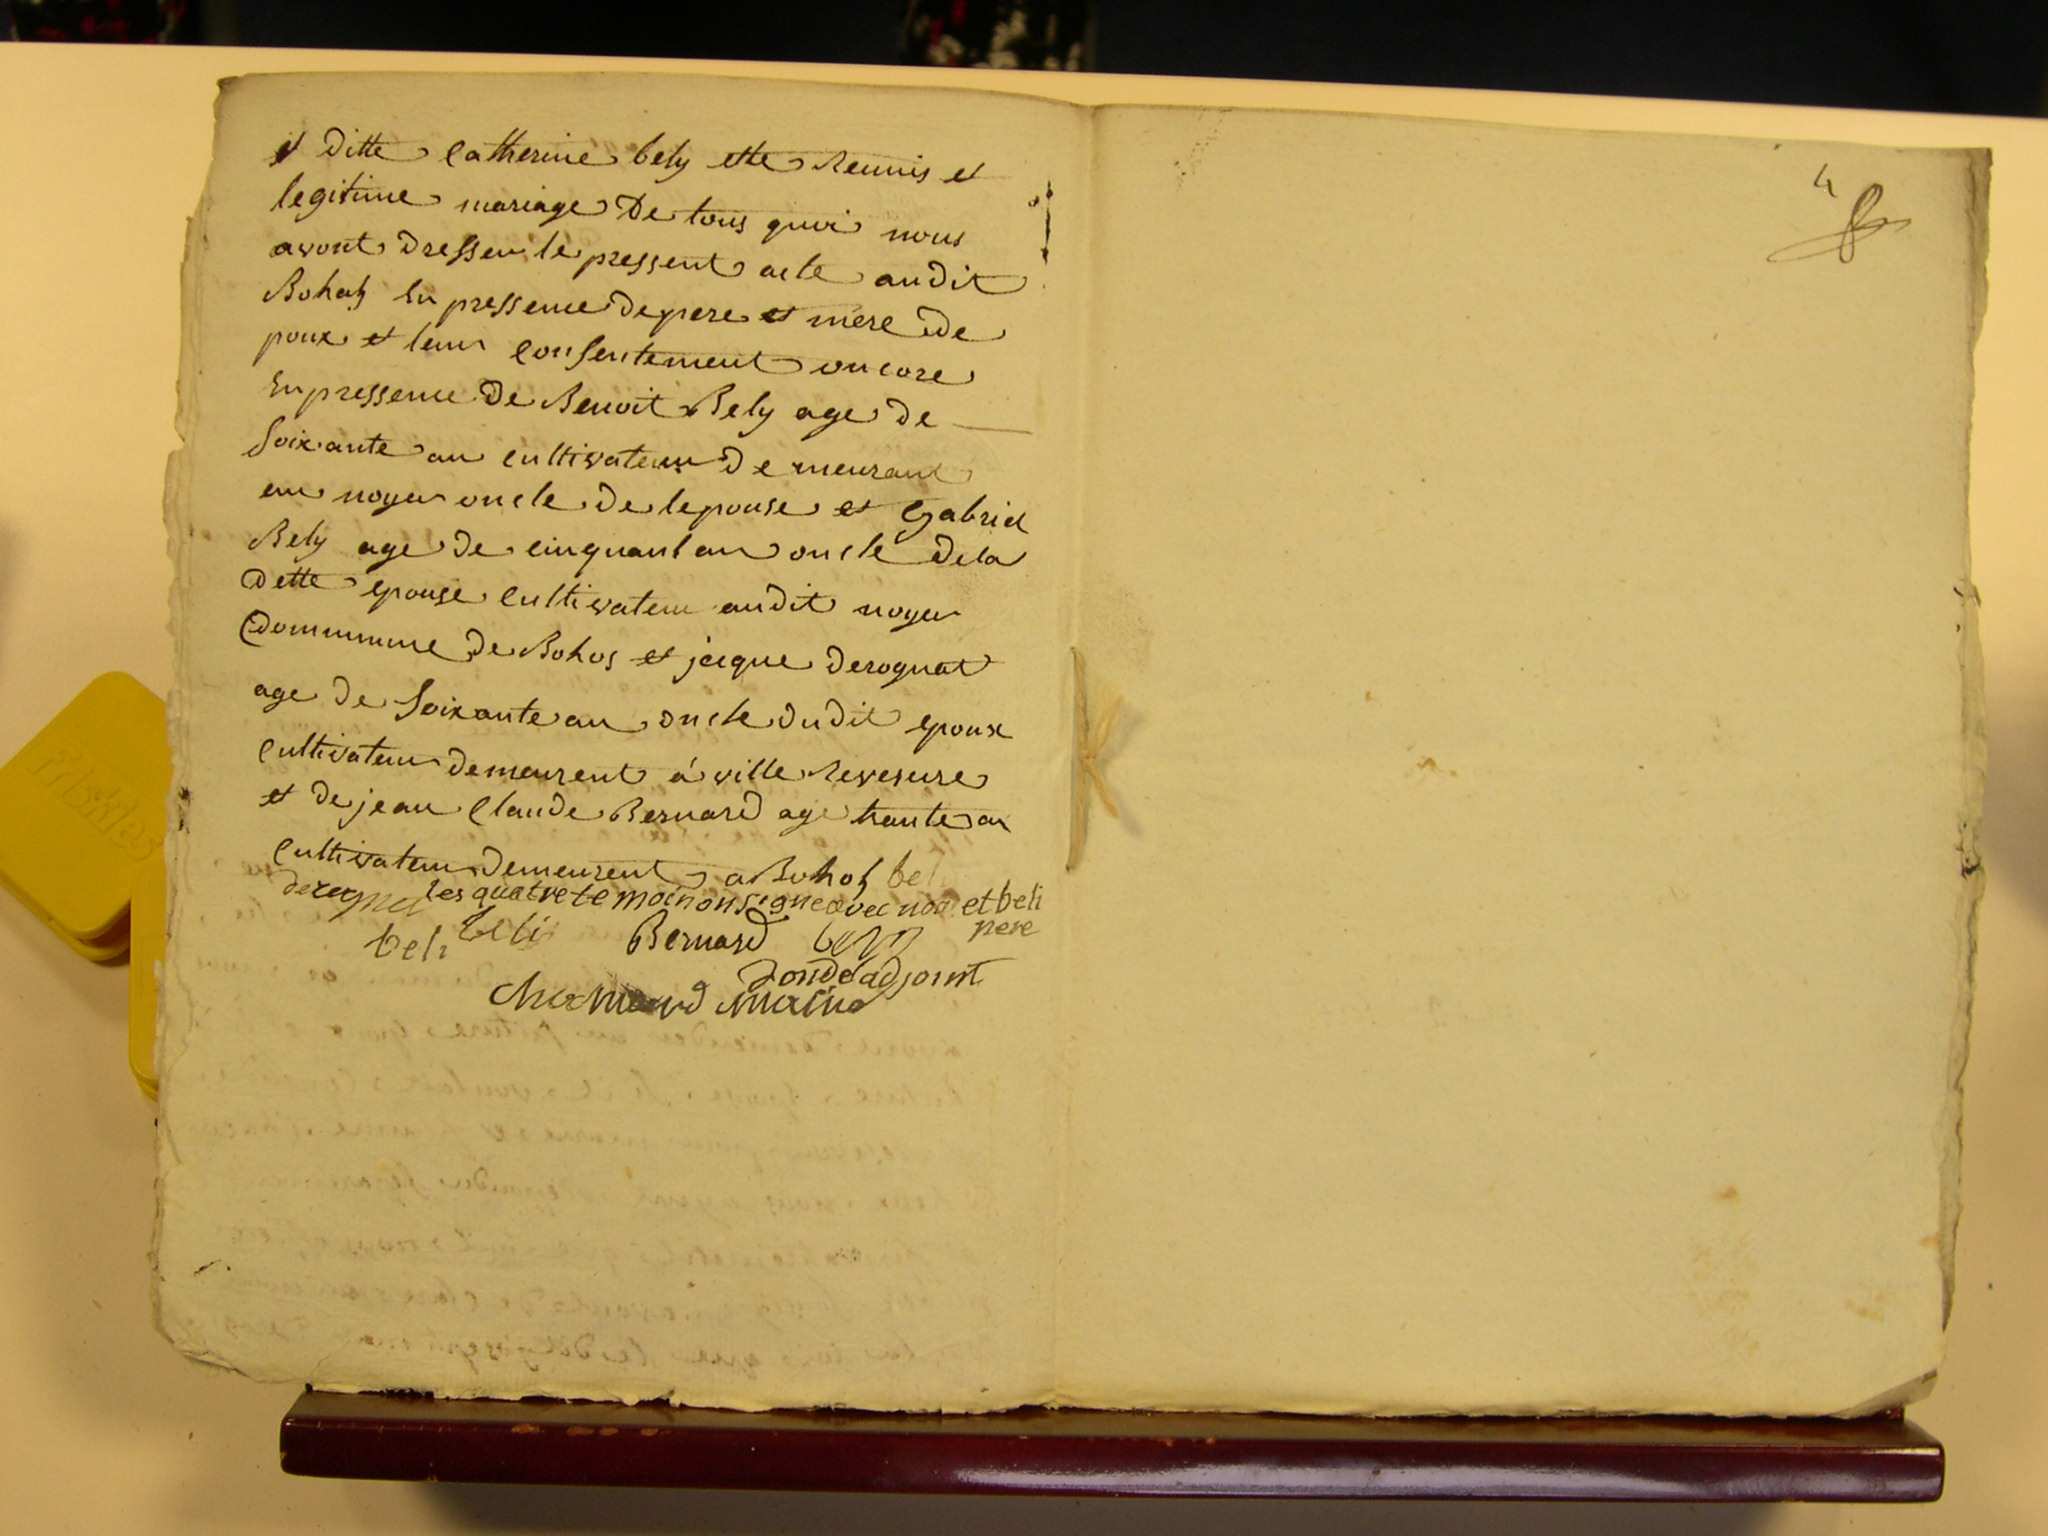 et ditte Catherine bely ette Reunis et
legitime mariage De tous quoi nous
avont Dresser le pressent acte audit
Bohas En pressence De pere et mere De
poux et leur Consentement oncore
En pressence De Benoit Bely age De
Soixante an Cultivateur De meurant
au noyer oncle De lepouse et Gabriel
Bely age De cinquant an oncle Dela
Dette epouse Cultivateur audit noyer
Commune De Bohos et jacque derognat
age De Soixante an oncle Dudit epoux
Cultivateur Demeurent á ville Reversure
et De jean Claude Bernard age trante an
Cultivateur Demeurent a Bohas bel
derognat les quatre temoin on signe avec nou et beli
pere
beli beli Bernard bely
Donde adjoint
maire
4
Priskles